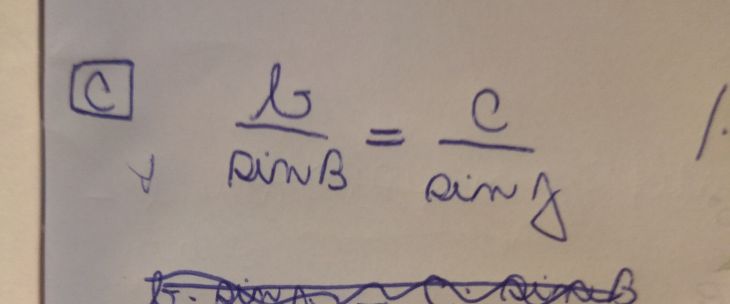 C b/sinB = c/sinγ /.